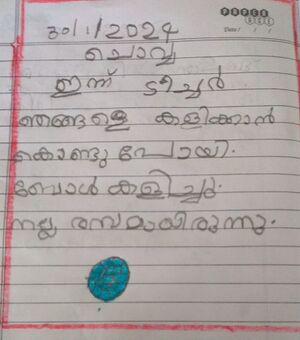 PAPER BEE
Date: / /
30/1/2024
ചൊവ്വ
ഇന്ന് ടീച്ചർ
ഞങ്ങളെ കളിക്കാൻ
കൊണ്ടു പോയി.
ബോൾ കളിച്ചു.
നല്ല രസമായിരുന്നു.